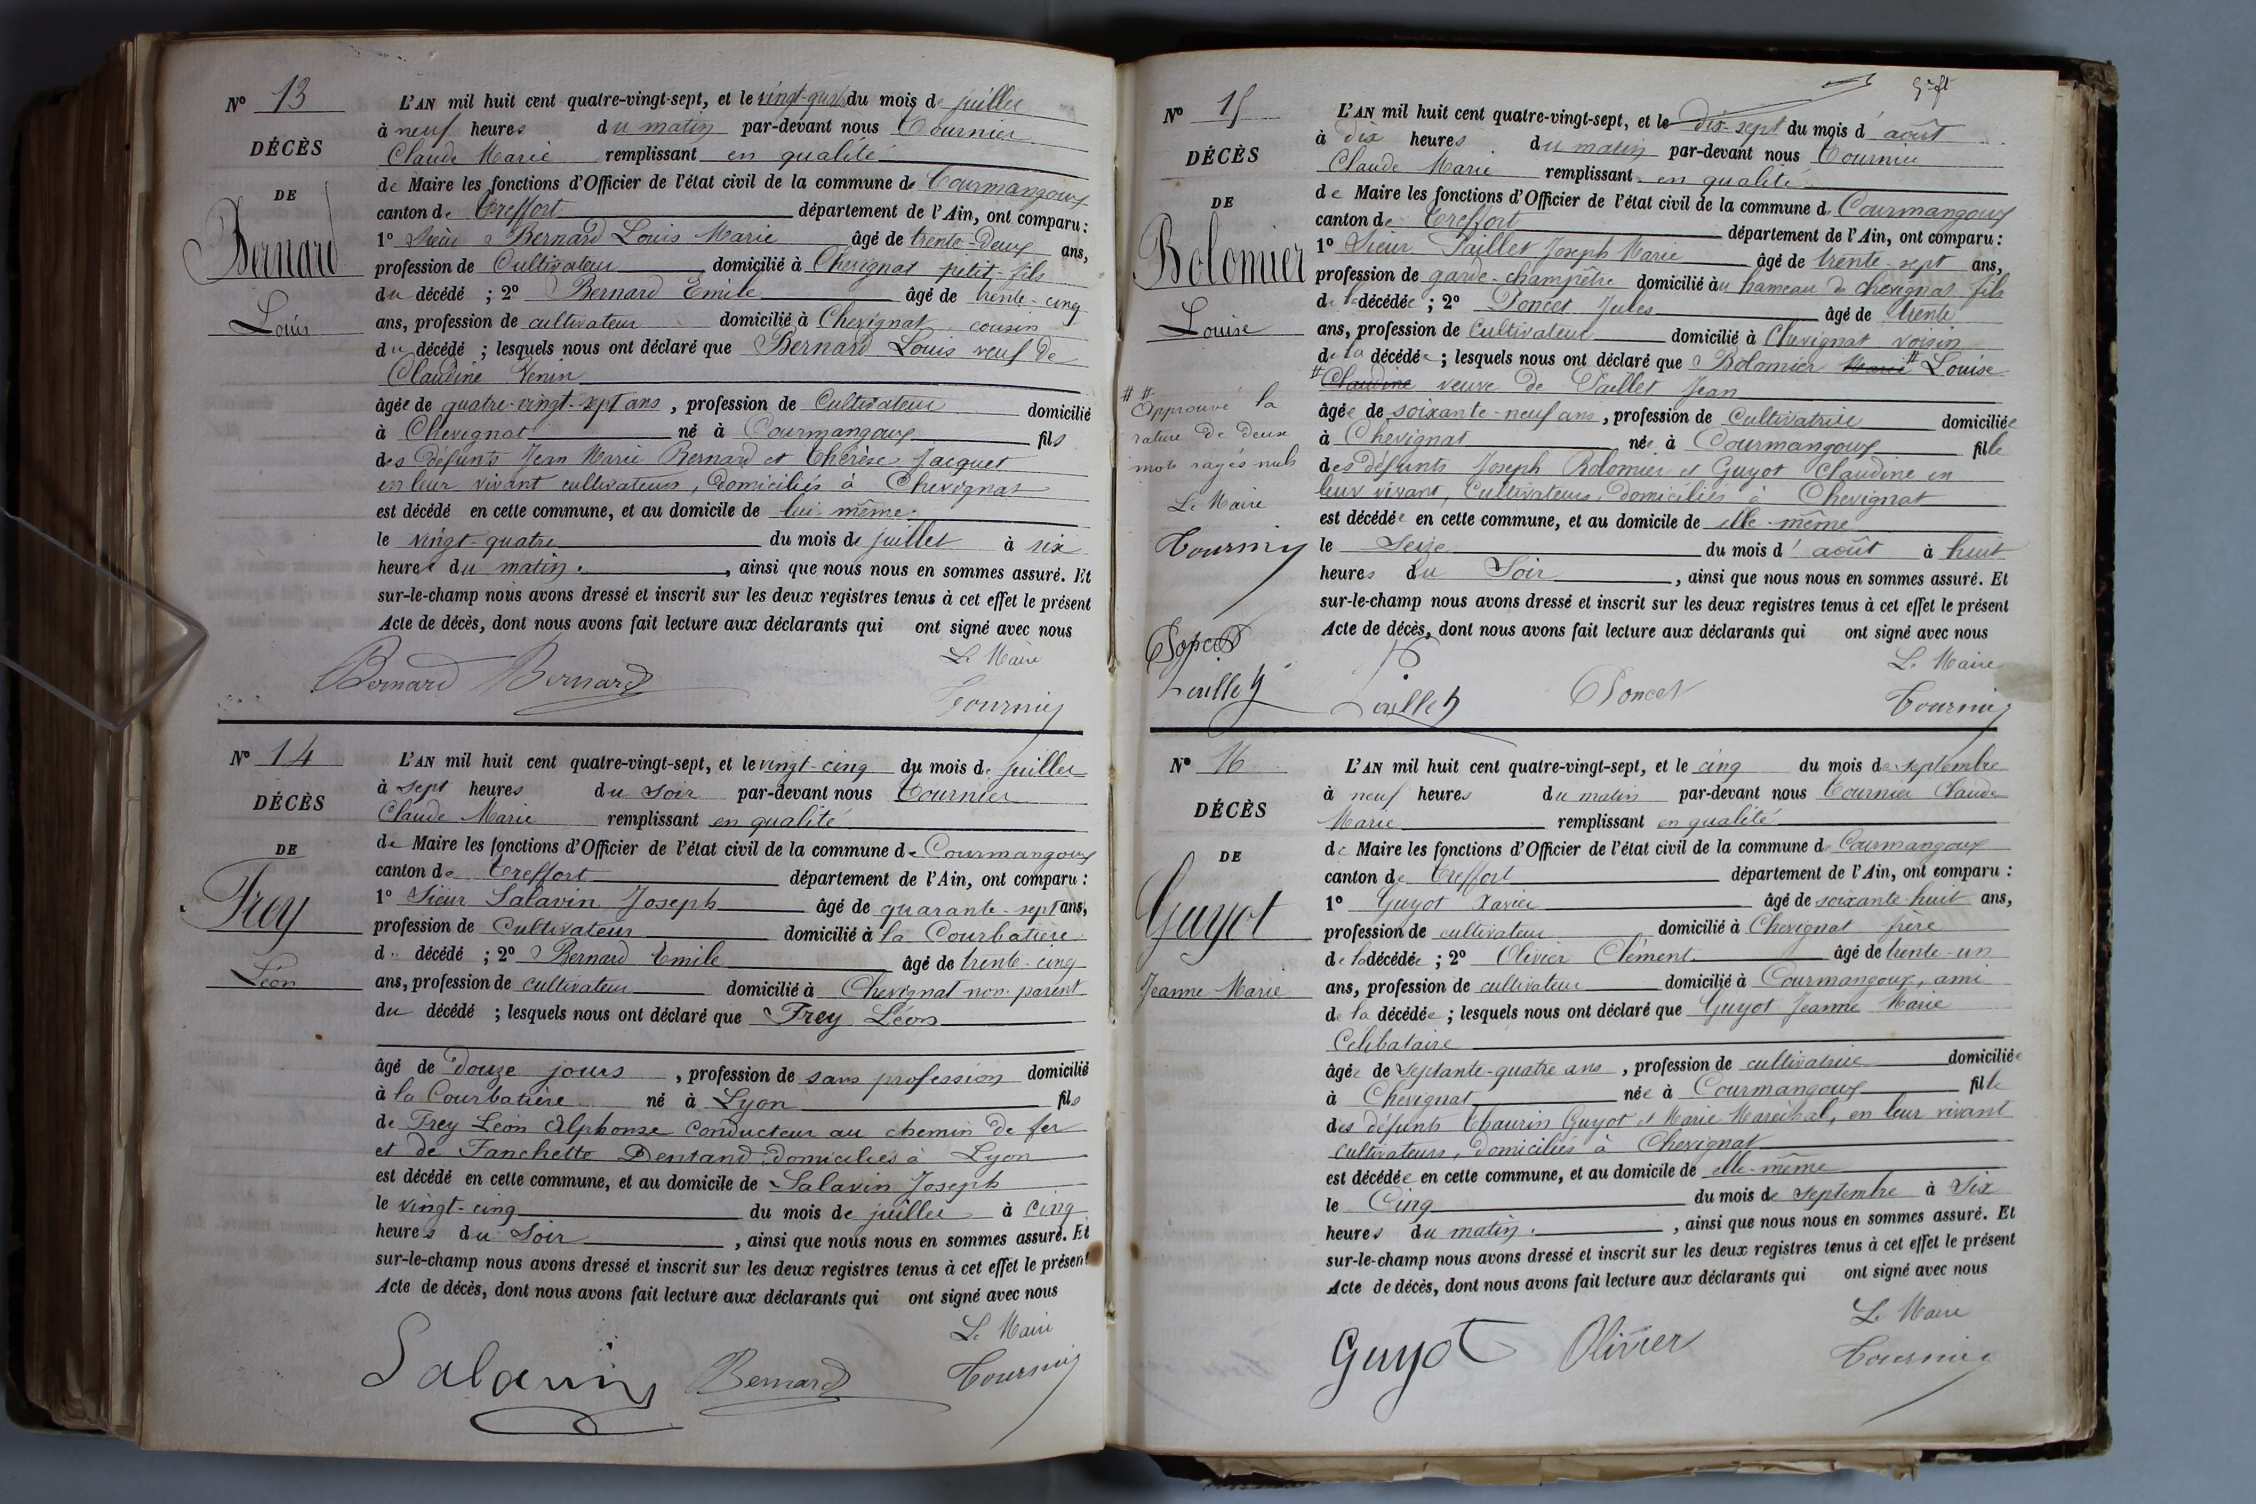 N° 13
DÉCÈS
DE
Bernard
Louis
L'AN mil huit cent quatre-vingt-sept, et le vingt-quatre du mois de juillet
à neuf heures du matin par-devant nous Tournier
Claude Marie remplissant en qualité
de Maire les fonctions d'Officier de l'état civil de la commune de Courmangoux
canton de Treffort département de l'Ain, ont comparu :
1° Sieur Bernard Louis Marie âgé de trente-deux ans,
profession de Cultivateur domicilié à Chevignat petit-fils
du décédé ; 2° Bernard Emile âgé de trente-cinq
ans, profession de cultivateur domicilié à Chevignat cousin
du décédé ; lesquels nous ont déclaré que Bernard Louis veuf de
Claudine Venin
âgée de quatre-vingt-sept ans, profession de Cultivateur domicilié
à Chevignat né à Courmangoux fils
des défunts Jean Marie Bernard et Thérèse Jacquet
en leur vivant cultivateurs, domiciliés à Chevignat
est décédé en cette commune, et au domicile de lui-même
le vingt-quatre du mois de juillet à six
heures du matin, ainsi que nous nous en sommes assuré. Et
sur-le-champ nous avons dressé et inscrit sur les deux registres tenus à cet effet le présent
Acte de décès, dont nous avons fait lecture aux déclarants qui ont signé avec nous
Le Maire
Bernard Bernard Tournier
N° 14
DÉCÈS
DE
Frey
Léon
L'AN mil huit cent quatre-vingt-sept, et le vingt-cinq du mois de juillet
à sept heures du soir par-devant nous Tournier
Claude Marie remplissant en qualité
de Maire les fonctions d'Officier de l'état civil de la commune de Courmangoux
canton de Treffort département de l'Ain, ont comparu :
1° Sieur Salavin Joseph âgé de quarante-sept ans,
profession de Cultivateur domicilié à la Courbatière
du décédé ; 2° Bernard Emile âgé de trente-cinq
ans, profession de cultivateur domicilié à Chevignat non parent
du décédé ; lesquels nous ont déclaré que Frey Léon
âgé de Douze jours, profession de sans profession domicilié
à la Courbatière né à Lyon fils
de Frey Léon Alphonse Conducteur au chemin de fer
et de Fanchette Dentand domiciliés à Lyon
est décédé en cette commune, et au domicile de Salavin Joseph
le vingt-cinq du mois de juillet à cinq
heures du Soir, ainsi que nous nous en sommes assuré. Et
sur-le-champ nous avons dressé et inscrit sur les deux registres tenus à cet effet le présent
Acte de décès, dont nous avons fait lecture aux déclarants qui ont signé avec nous
Le Maire
Salavin Bernard Tournier
N° 15
DÉCÈS
DE
Bolomier
Louise
# #
Approuvé la
rature de deux
mots rayés nuls
Le Maire
Tournier
L'AN mil huit cent quatre-vingt-sept, et le dix-sept du mois d'août
à dix heures du matin par-devant nous Tournier
Claude Marie remplissant en qualité
de Maire les fonctions d'Officier de l'état civil de la commune de Courmangoux
canton de Treffort département de l'Ain, ont comparu :
1° Sieur Paillet Joseph Marie âgé de trente-sept ans,
profession de garde-champêtre domicilié au hameau de Chevignat fils
de la décédée ; 2° Poncet Jules âgé de trente
ans, profession de Cultivateur domicilié à Chevignat voisin
de la décédée ; lesquels nous ont déclaré que Bolomier Marie # Louise
# Claudine veuve de Paillet Jean
âgée de soixante-neuf ans, profession de Cultivatrice domiciliée
à Chevignat née à Courmangoux fille
des défunts Joseph Bolomier et Guyot Claudine en
leur vivant, Cultivateurs, domiciliés à Chevignat
est décédée en cette commune, et au domicile de elle-même
le Seize du mois d'août à huit
heures du Soir, ainsi que nous nous en sommes assuré. Et
sur-le-champ nous avons dressé et inscrit sur les deux registres tenus à cet effet le présent
Acte de décès, dont nous avons fait lecture aux déclarants qui ont signé avec nous
Le Maire
Paillet Paillet Poncet Tournier
N° 16
DÉCÈS
DE
Guyot
Jeanne Marie
L'AN mil huit cent quatre-vingt-sept, et le cinq du mois de septembre
à neuf heures du matin par-devant nous Tournier Claude
Marie remplissant en qualité
de Maire les fonctions d'Officier de l'état civil de la commune de Courmangoux
canton de Treffort département de l'Ain, ont comparu :
1° Guyot Xavier âgé de soixante-huit ans,
profession de cultivateur domicilié à Chevignat frère
de la décédée ; 2° Olivier Clément âgé de trente-un
ans, profession de cultivateur domicilié à Courmangoux, ami
de la décédée ; lesquels nous ont déclaré que Guyot Jeanne Marie
Célibataire
âgée de septante-quatre ans, profession de cultivatrice domiciliée
à Chevignat née à Courmangoux fille
des défunts Thaurin Guyot et Marie Maréchal, en leur vivant
cultivateurs, domiciliés à Chevignat
est décédée en cette commune, et au domicile de elle-même
le Cinq du mois de septembre à Six
heures du matin, ainsi que nous nous en sommes assuré. Et
sur-le-champ nous avons dressé et inscrit sur les deux registres tenus à cet effet le présent
Acte de décès, dont nous avons fait lecture aux déclarants qui ont signé avec nous
Le Maire
Guyot Olivier Tournier